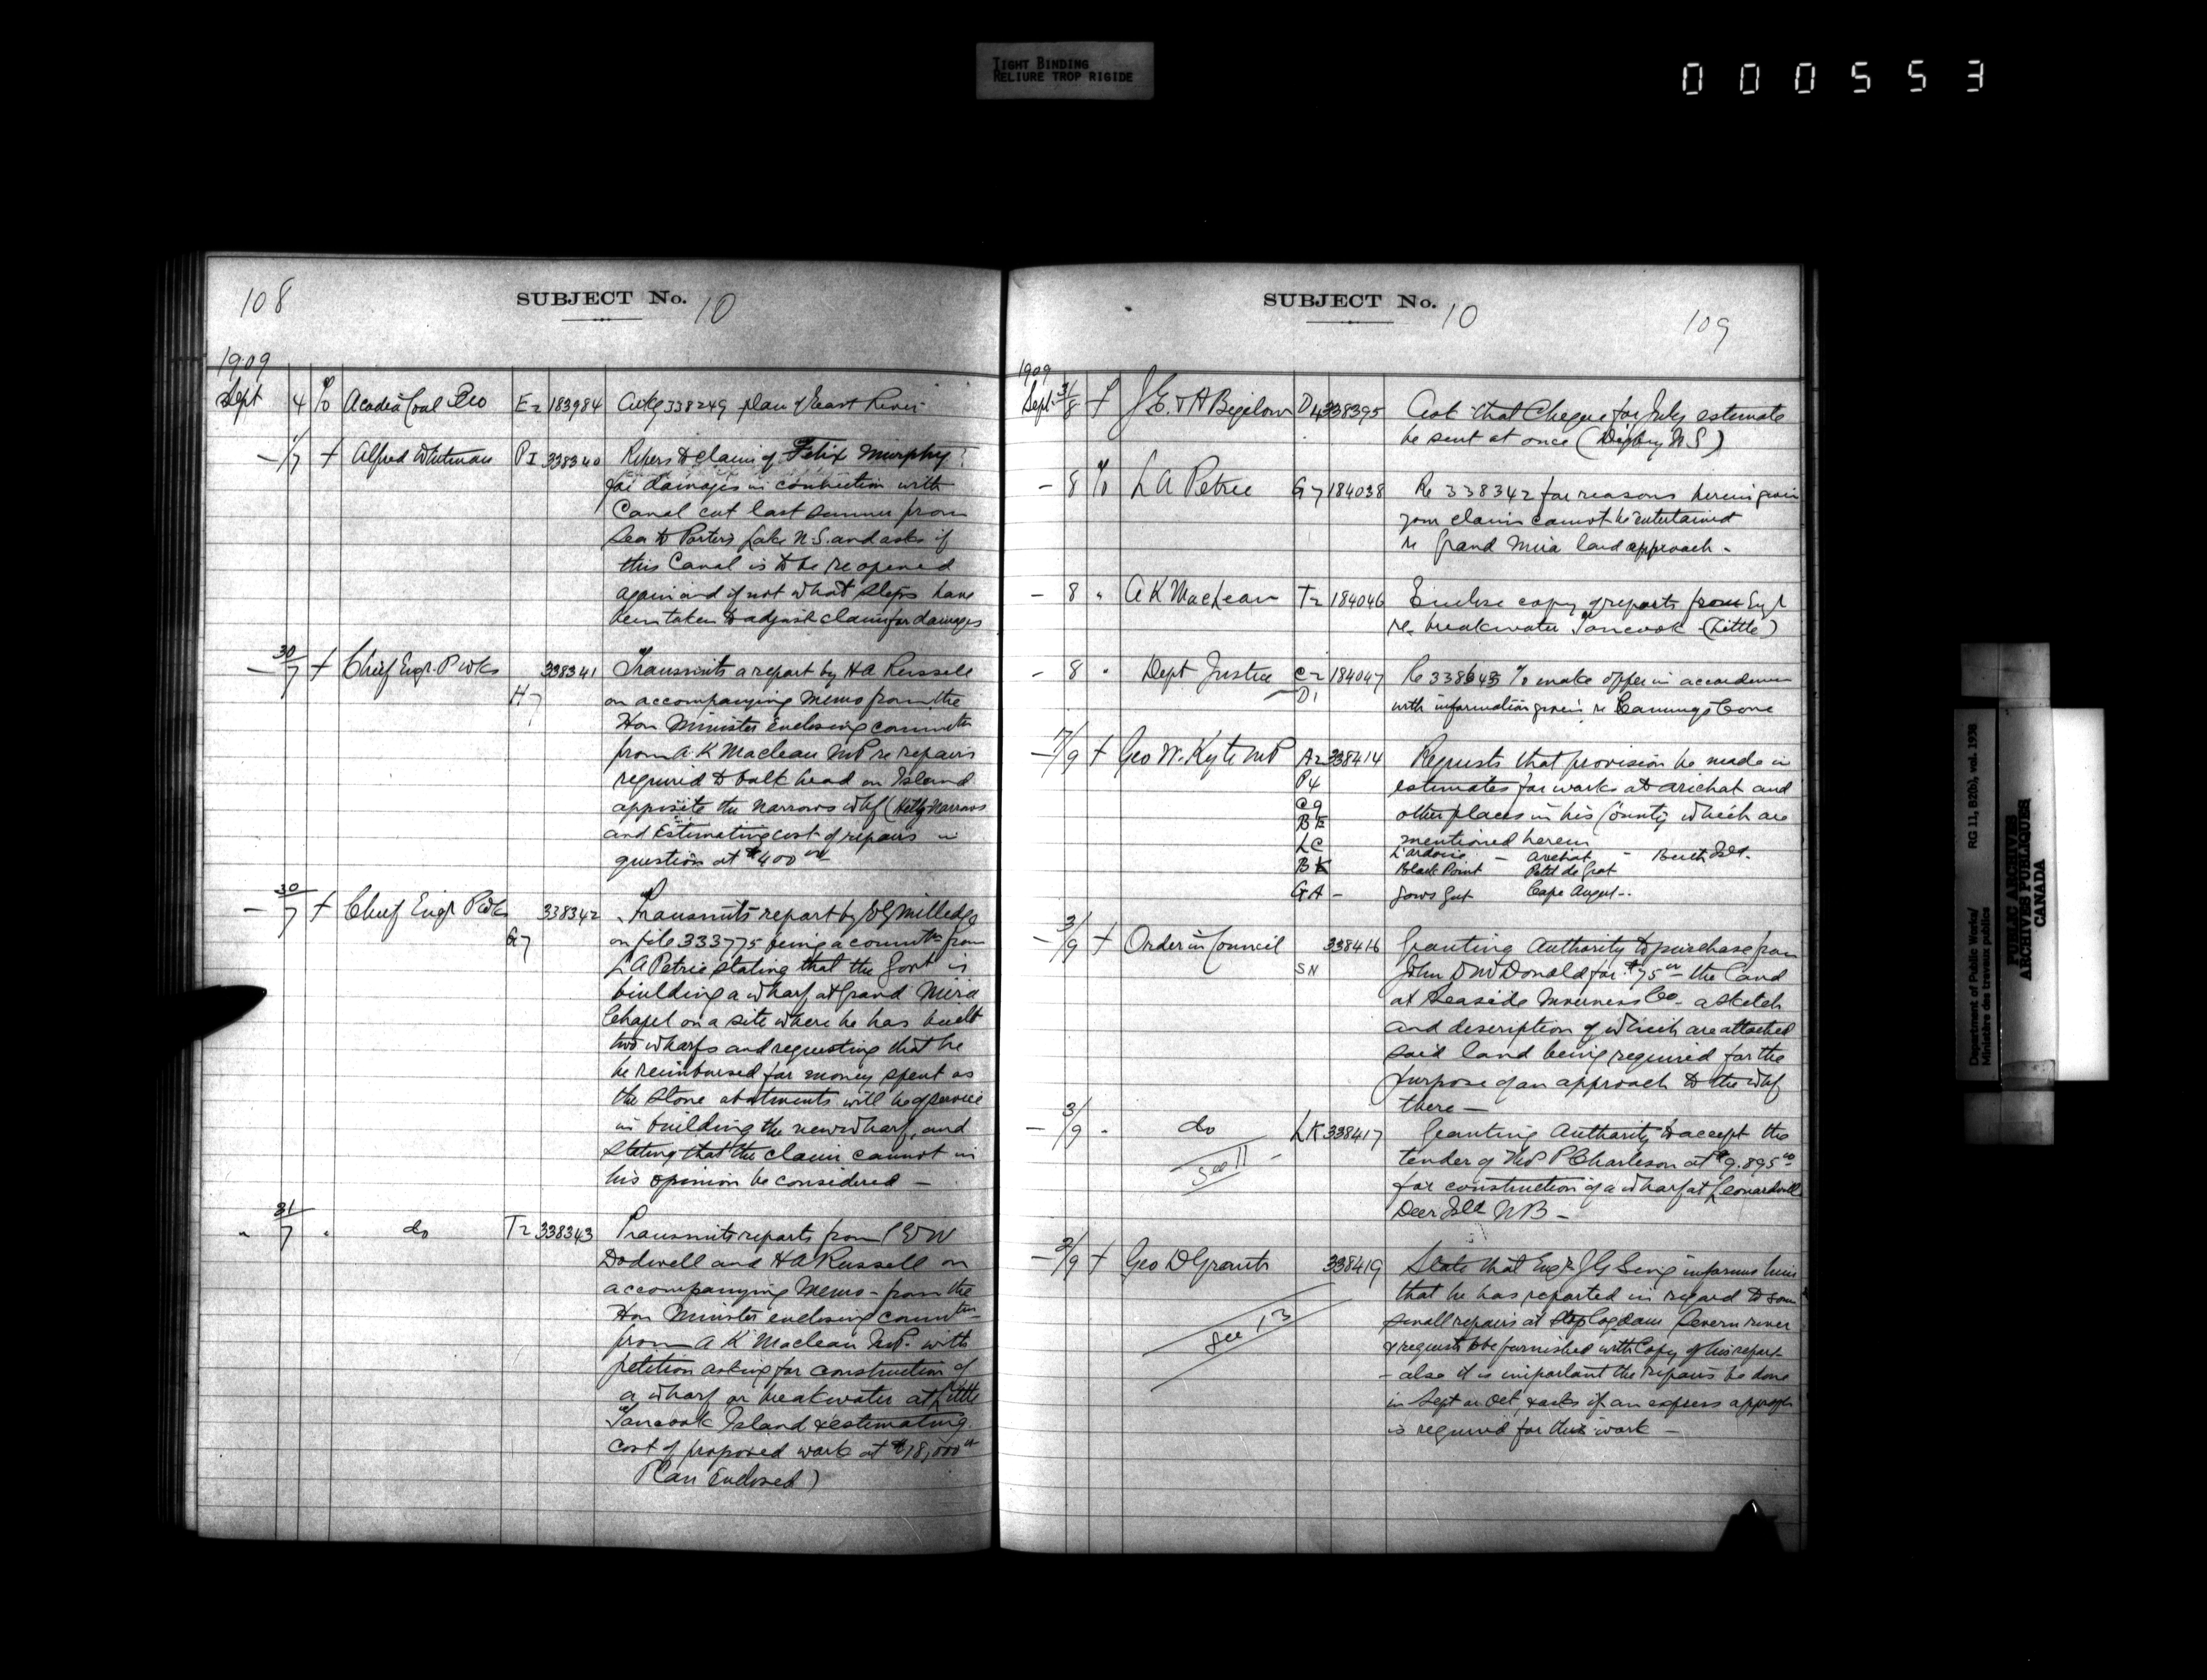 TIGHT BINDING
RELIURE TROP RIGIDE
000553
108
SUBJECT No. 10
1909
Sept 4 % Acadia Coal Co E2 183984 Ackg 338249 plan of East River
- 1/7 + Alfred Whitman PI 338340 Refers to claim of Felix Murphy
for damages in connection with
Canal cut last summer from
Sea to Porters Lake N.S. and asks if
this Canal is to be re opened
again and if not what steps have
been taken to adjust claim for damages
- 30/7 + Chief Engr. P Wks 338341 Transmits a report by H A Russell
H7 on accompanying memo from the
Hon Minister enclosing commctn
from A. K Maclean MP re repairs
required to bulk head on Island
opposite the Narrows whf (Narrows
and Estimating cost of repairs in
question at $400 00
- 30/7 + Chief Engr P Wks 338342 Transmits report by E G Milledge
G7 on file 333775 being a commctn from
L A Petrie stating that the Govt is
building a wharf at Grand Mira
Chapel on a site where he has built
two wharfs and requesting that he
be reimbursed for money spent as
the stone abutments will be of service
in building the new wharf, and
stating that the claim cannot in
his opinion be considered -
" 31/7 " do T2 338343 Transmits reports from C E W
Dodwell and H A Russell on
accompanying Memo - from the
Hon Minister enclosing commctn
from A K Maclean M.P. with
petition asking for construction of
a wharf or breakwater at Little
Tancook Island & estimating
cost of proposed work at $18,000 00
Plan Enclosed)
SUBJECT No. 10
109
1909
Sept 3/8 + J E. & A Bigelow D4 338395 Ask that Cheque for July estimate
be sent at once (Digby N S)
- 8 % L A Petrie G7 184038 Re 338342 for reasons herein given
your claim cannot be entertained
re Grand Mira land approach -
- 8 " A K Maclean T2 184046 Enclose copy of reports from Engr
re breakwater Tancook (Little)
- 8 " Dept Justice C2 184047 Re make offer in accordance
D1 with information given re Cannings Cove
- 7/9 + Geo W. Kyte MP A2 338414 Requests that provision be made in
P4 estimates for works at Arichat and
C9 other places in his County which are
BE mentioned herein
LC L'ardoise - Arichat -
BK Black Point Petit de Grat
GA - Gows Gut Cape August..
- 3/9 + Order in Council 338416 Granting Authority to purchase from
SN John D McDonald for $75 00 the land
at Seaside Inverness Co - a sketch
and description of which are attached
said land being required for the
purpose of an approach to the whf
there -
- 3/9 " do LK 338417 Granting Authority to accept the
See 11 tender of P Charleson at $9.895 00
for construction of a wharf at Leonardville
Deer Isld N B -
- 2/9 + Geo D Grant 338419 State that Engr J G Sing informs him
See 13 that he has reported in regard to some
small repairs at dam Severn river
& requests to be furnished with Copy of his report
- also it is important the repairs be done
in Sept or Oct, & asks if an express
is required for this work -
Department of Public Works/ RG 11, B2(b), vol. 1938
Ministère des travaux publics
PUBLIC ARCHIVES
ARCHIVES PUBLIQUES
CANADA